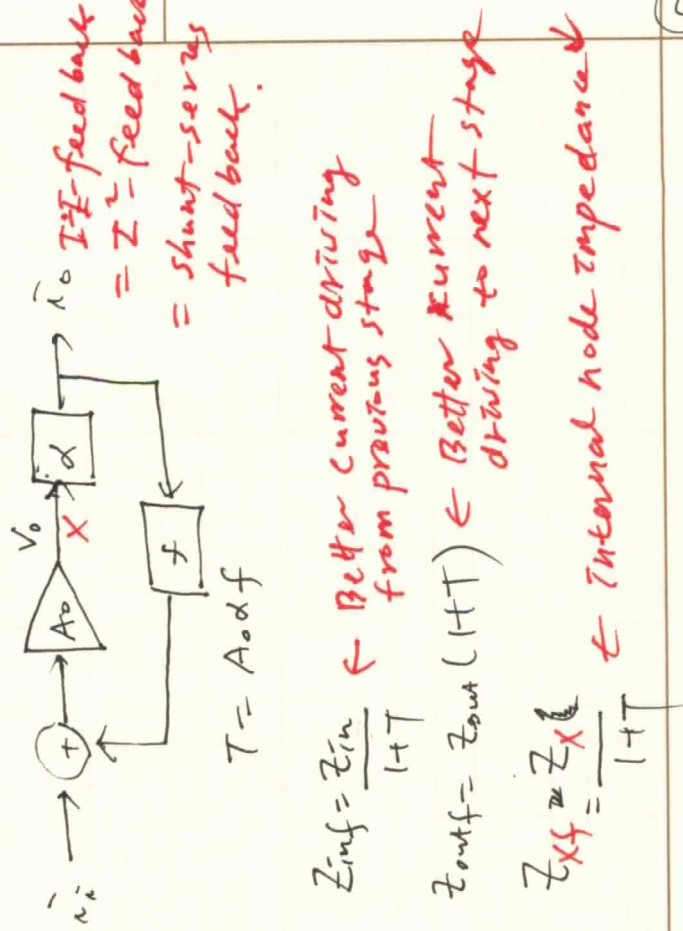 i_i
+
A_o
V_o
X
α
i_o
f
I²I-feedback
= I²-feedback
= shunt-series
feedback.
T = A_o α f
Z_inf = Z_in / 1+T ← Better current driving
from previous stage
Z_outf = Z_out (1+T) ← Better current
driving to next stage
Z_Xf = Z_X / 1+T ← Internal node impedance ↓